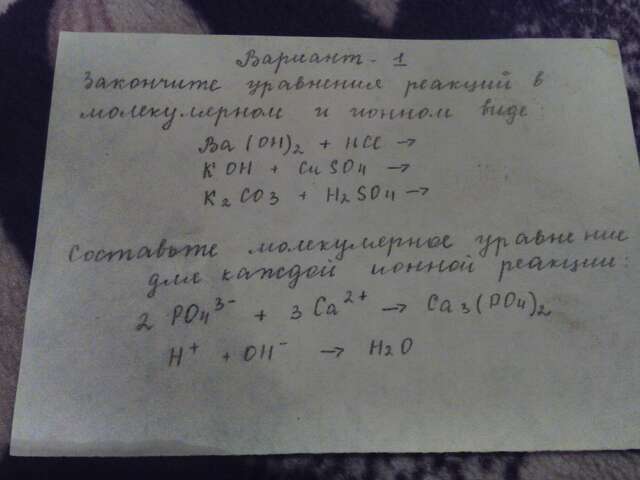 Вариант - 1
Закончите уравнения реакций в
молекулярном и ионном виде:
Ba(OH)2 + HCl →
KOH + CuSO4 →
K2CO3 + H2SO4 →
Составьте молекулярное уравнение
для каждой ионной реакции:
2 PO4 3- + 3 Ca 2+ → Ca3(PO4)2
H+ + OH- → H2O